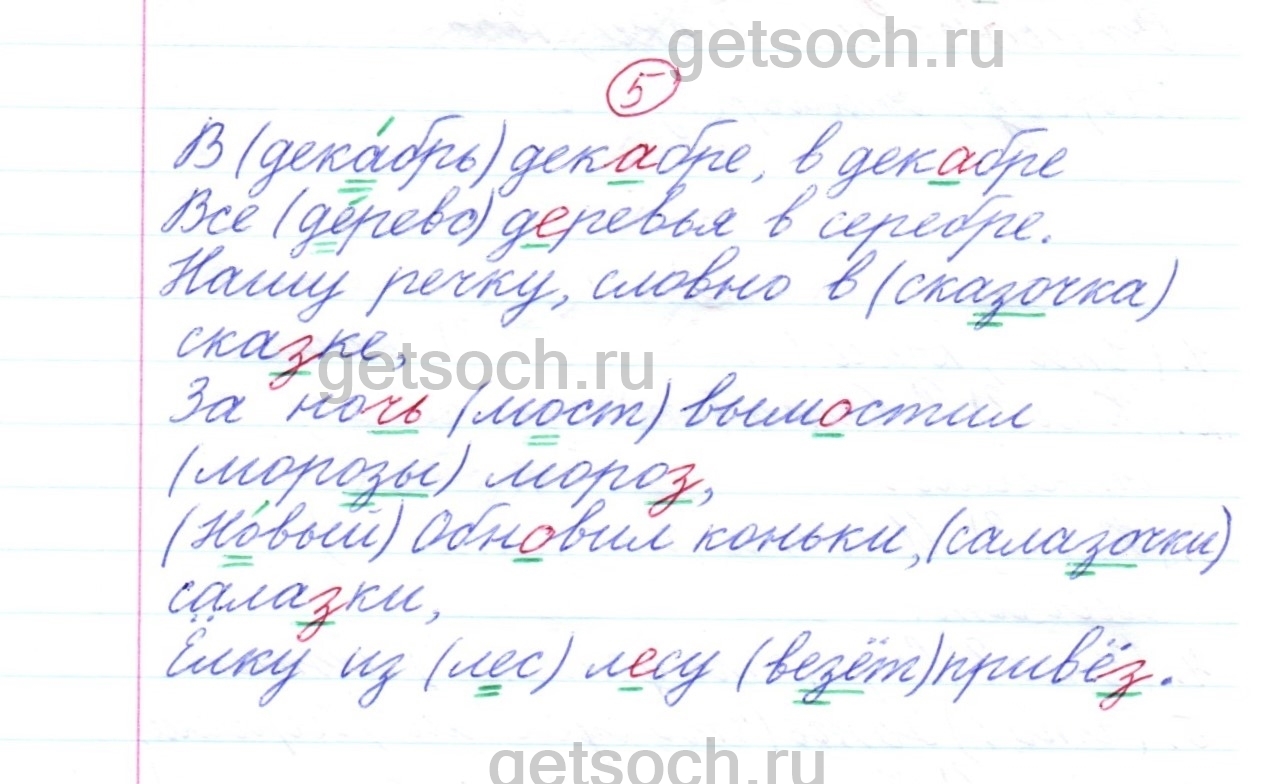 getsoch.ru
5
В (дека́брь) декабре, в декабре
Все (де́рево) деревья в серебре.
Нашу речку, словно в (сказочка)
сказке,
getsoch.ru
За ночь (мост) вымостил
(морозы) мороз,
(Но́вый) Обновил коньки, (салазочки)
салазки,
Ёлку из (лес) лесу (везёт) привёз.
getsoch.ru